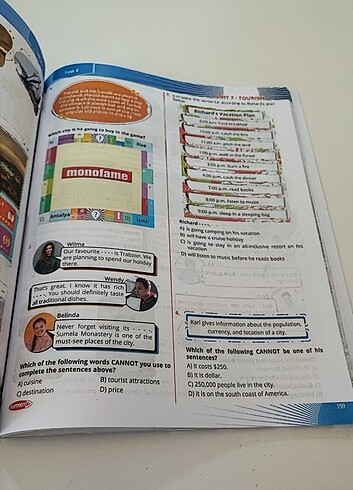 Test 6
UNIT 7 - TOURISM
Which city is he going to buy in the game?
Rize
monofame
C) Antalya
D) İzmir
Wilma
Our favourite - - - - is Trabzon. We
are planning to spend our holiday
there.
Wendy
That's great. I know it has rich
- - - -. You should definitely taste
all traditional dishes.
Belinda
Never forget visiting its - - - -.
Sumela Monastery is one of the
must-see places of the city.
Which of the following words CANNOT you use to
complete the sentences above?
A) cuisine
B) tourist attractions
C) destination
D) price
Complete the sentence according to Richard's plan
Richard's Vacation Plan
9:00 a.m. have breakfast
10:00 a.m. catch the bus
11:00 a.m. pitch the tent
1:00 p.m. walk in the forest
3:00 p.m. burn a fire
4:00 p.m. cook the dinner
7:00 p.m. read books
8:00 p.m. listen to music
9:00 p.m. sleep in a sleeping bag
Richard - - - -.
A) is going camping on his vacation
B) will have a cruise holiday
C) is going to stay in an all-inclusive resort on his
vacation
D) will listen to music before he reads books
4.
Karl gives information about the population,
currency, and location of a city.
Which of the following CANNOT be one of his
sentences?
A) It costs $250.
B) It is dollar.
C) 250,000 people live in the city.
D) It is on the south coast of America.
159